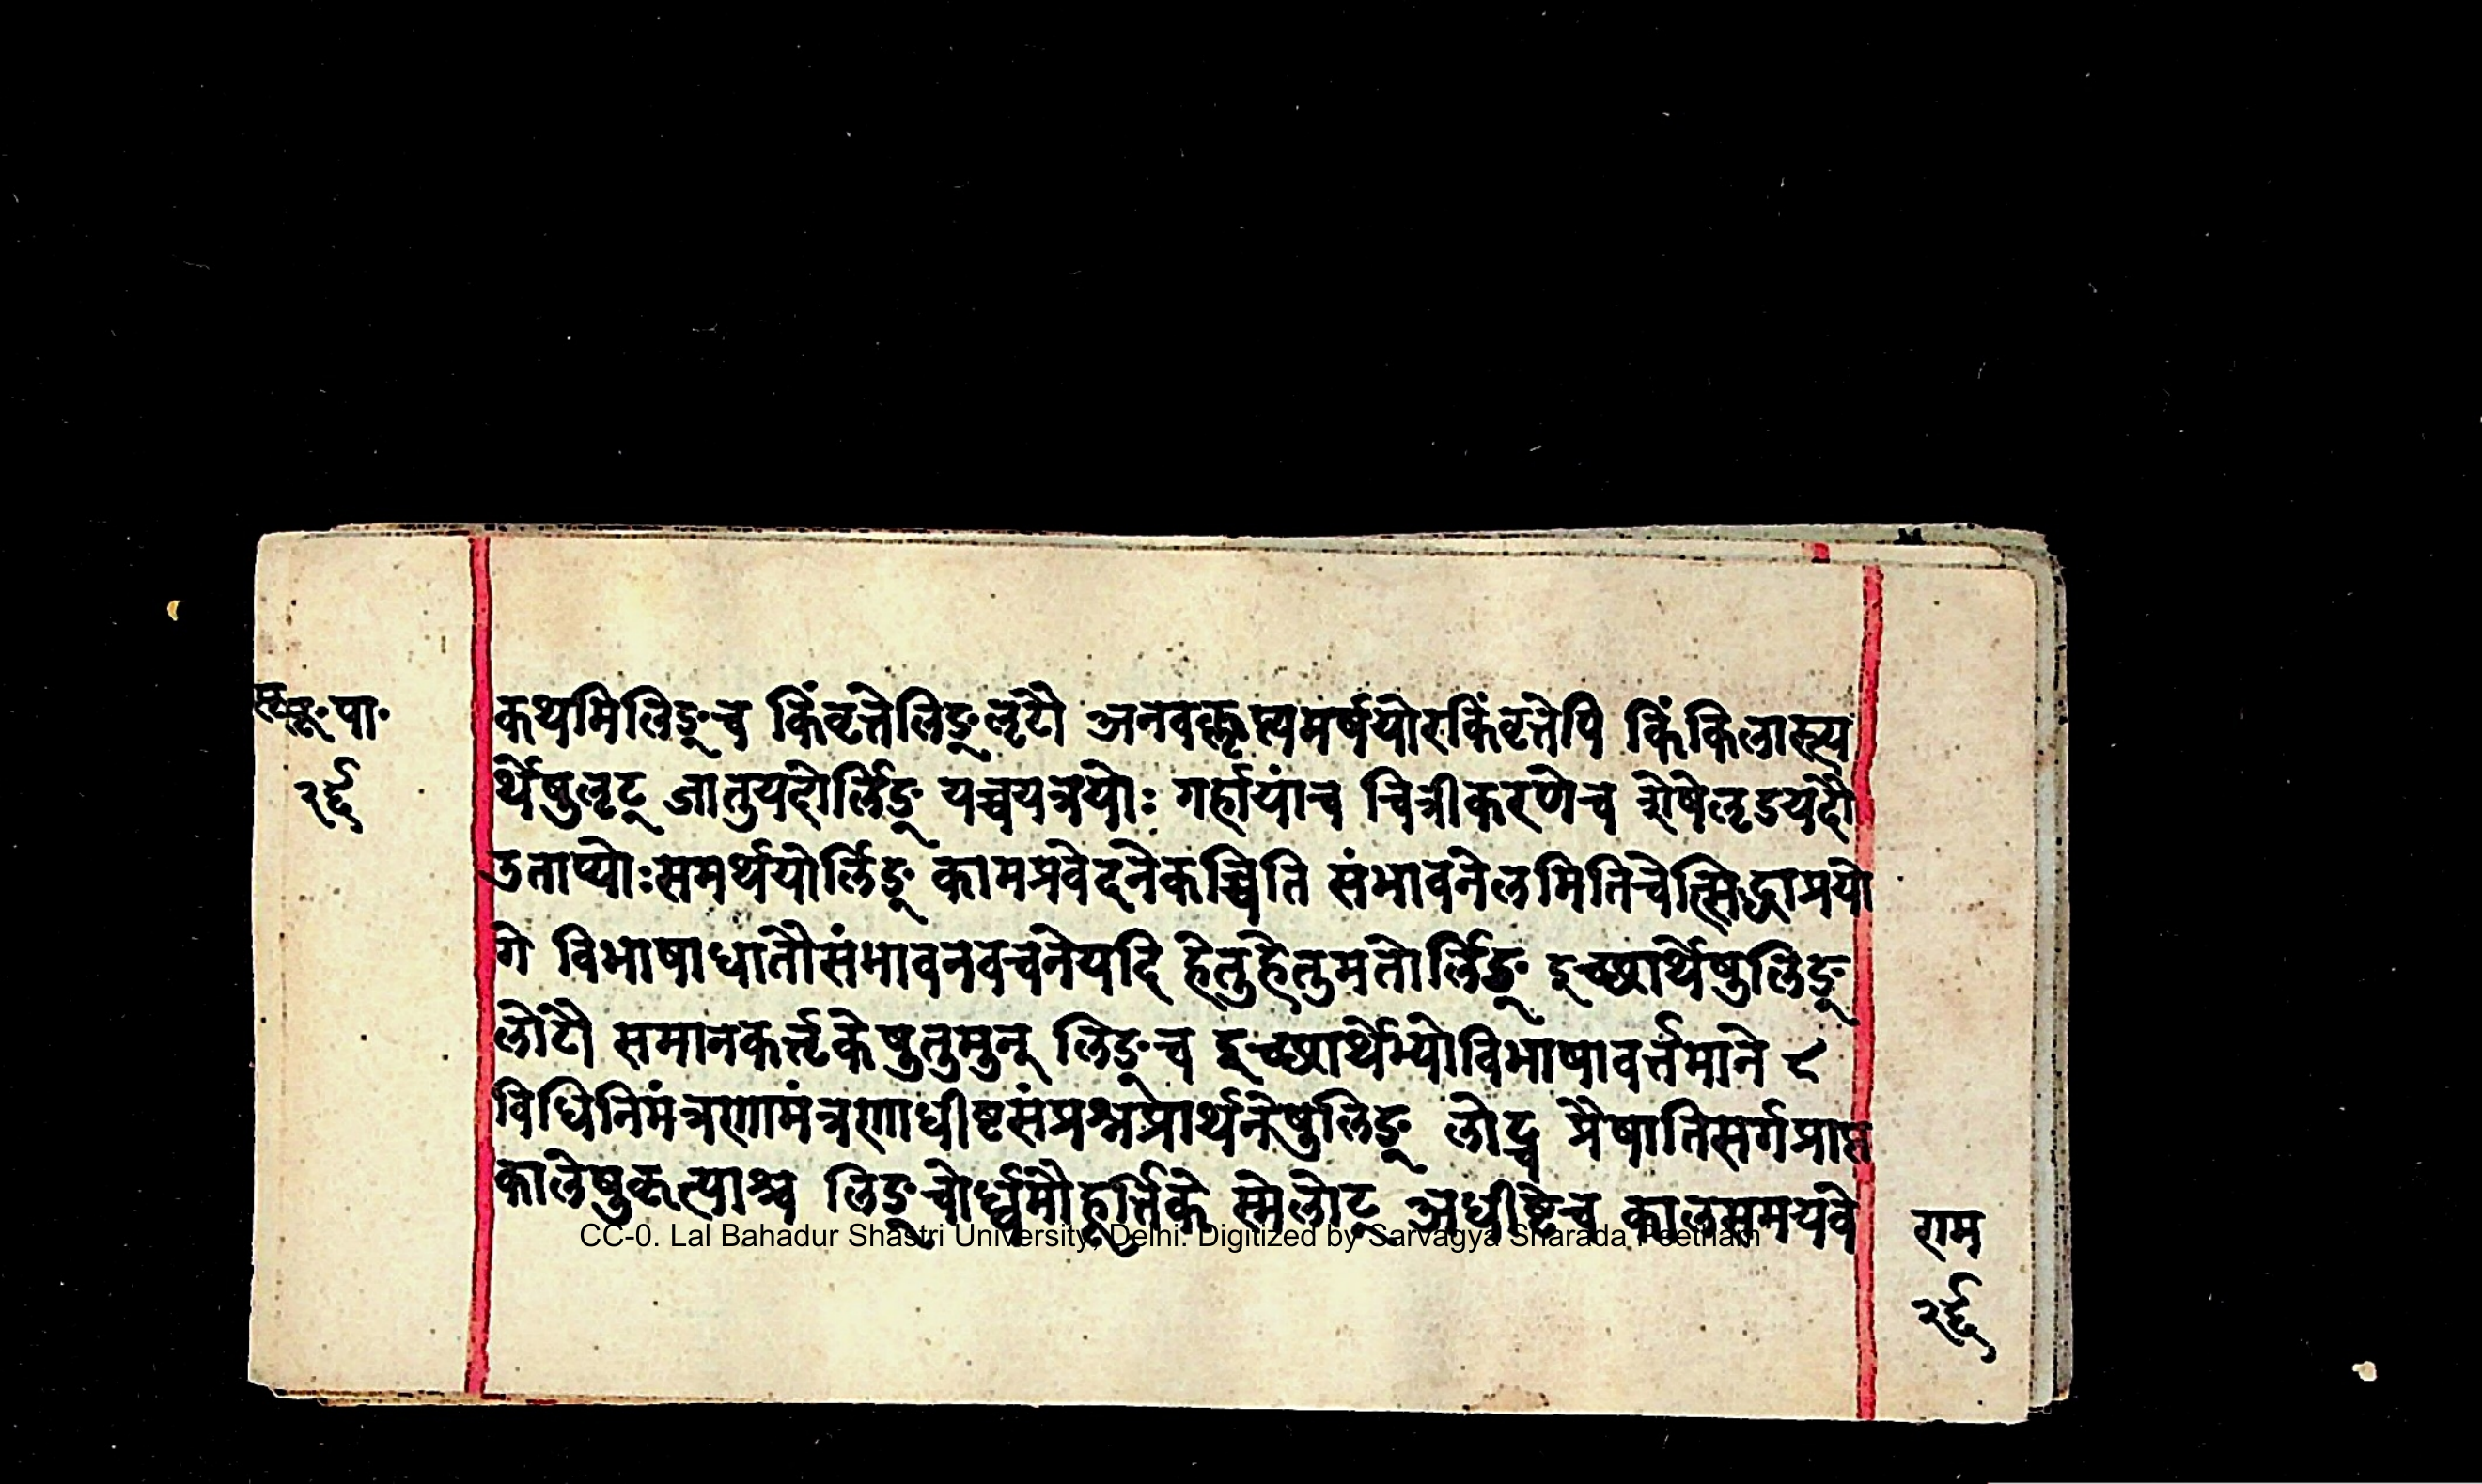 सूत्र॰पा॰
२६
कथमिलिङ्च किंवृत्तेलिङ्लृटौ अनवक्लृप्त्यमर्षयोरकिंवृत्तेपि किंकिलास्त्य
र्थेषुलृट् जातुयदोर्लिङ् यच्चयत्रयोः गर्हायांच चित्रीकरणेच शेषेलृडयदौ
उताप्योःसमर्थयोर्लिङ् कामप्रवेदनेकच्चिति संभावनेलमितिचेत्सिद्धाप्रयो
गे विभाषाधातौसंभावनवचनेयदि हेतुहेतुमतोर्लिङ् इच्छार्थेषुलिङ्
लोटौ समानकर्त्तृकेषुतुमुन् लिङ्च इच्छार्थेभ्योविभाषावर्त्तमाने ८
विधिनिमंत्रणामंत्रणाधीष्टसंप्रश्नप्रार्थनेषुलिङ् लोट्च प्रैषातिसर्गप्राप्त
कालेषुकृत्याश्च लिङ्चोर्ध्वमौहूर्त्तिके स्मेलोट् अधीष्टेच कालसमयवे
CC-0. Lal Bahadur Shastri University, Delhi. Digitized by Sarvagya Sharada Peetham
राम
२६